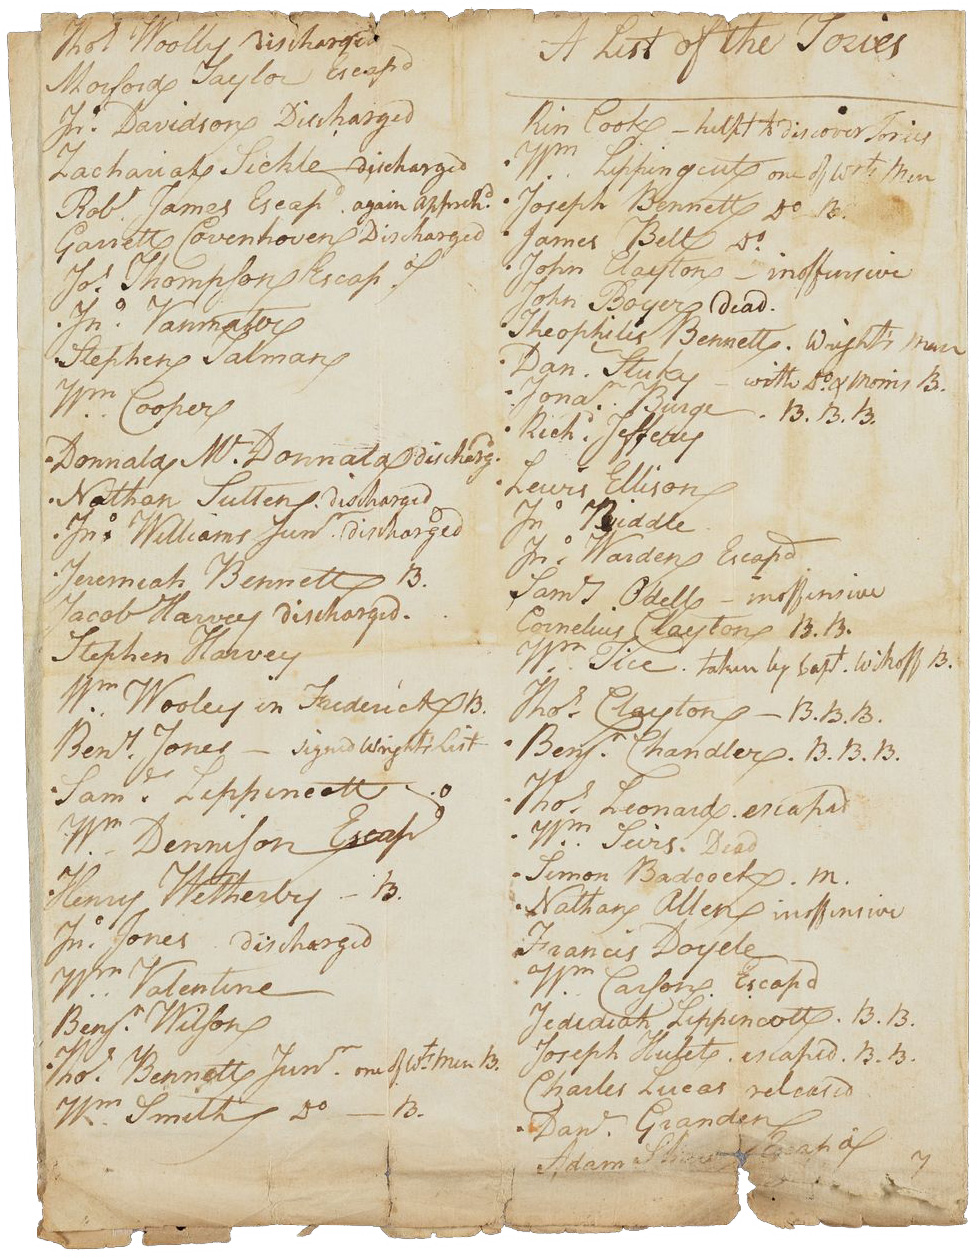 Thos. Woolly discharged
Morford Taylor Escap'd
Jno. Davidson Discharged
Zachariah Sickle discharged
Robt. James Escap'd. again appreh'd.
Garrett Covenhoven Discharged
Jos. Thompson Escap'd.
Jno. Vanmater
Stephen Talman
Wm. Cooper
Donnald McDonnald discharg'd.
Nathan Sutten. discharged
Jno. Williams Junr. discharged
Jeremiah Bennett B.
Jacob Harvey discharged.
Stephen Harvey
Wm. Wooley in Frederick B.
Benj. Jones — signed Wright's List
Saml. Lippincott
Wm. Dennison Escap'd
Henry Wetherby — B.
Jno. Jones discharged
Wm. Valentine
Benjn. Wilson
Thos. Bennett Junr. one of Wts Men B.
Wm. Smith Do — B.
A List of the Tories
Rin Cook — helpt to discover Tories
Wm. Lippingcut one of Wrts Men
Joseph Bennett Do B.
James Bell Do
John Clayton — inoffensive
John Boyer Dead.
Theophilis Bennett. Wright's Man
Dan. Stuky — with Do. & Morris B.
Jona. Burge. B. B. B.
Richd. Jeffery
Lewis Ellison
Jno Biddle
Jno. Warden Escap'd
Saml Odell — inoffinsive
Cornelius Clayton B. B.
Wm. Tice. taken by Capt. Wikoff B.
Thos. Clayton — B. B. B.
Benjn. Chandler. B. B. B.
Thos. Leonard. escaped
Wm. Seirs. Dead
Simon Badcock. m.
Nathan Allen inoffinsive
Francis Doyele
Wm. Carson. Escap'd
Jedediah Lippincott. B. B.
Joseph Hulet. escaped. B. B.
Charles Lucas released
Danl. Granden
Adam Escap'd